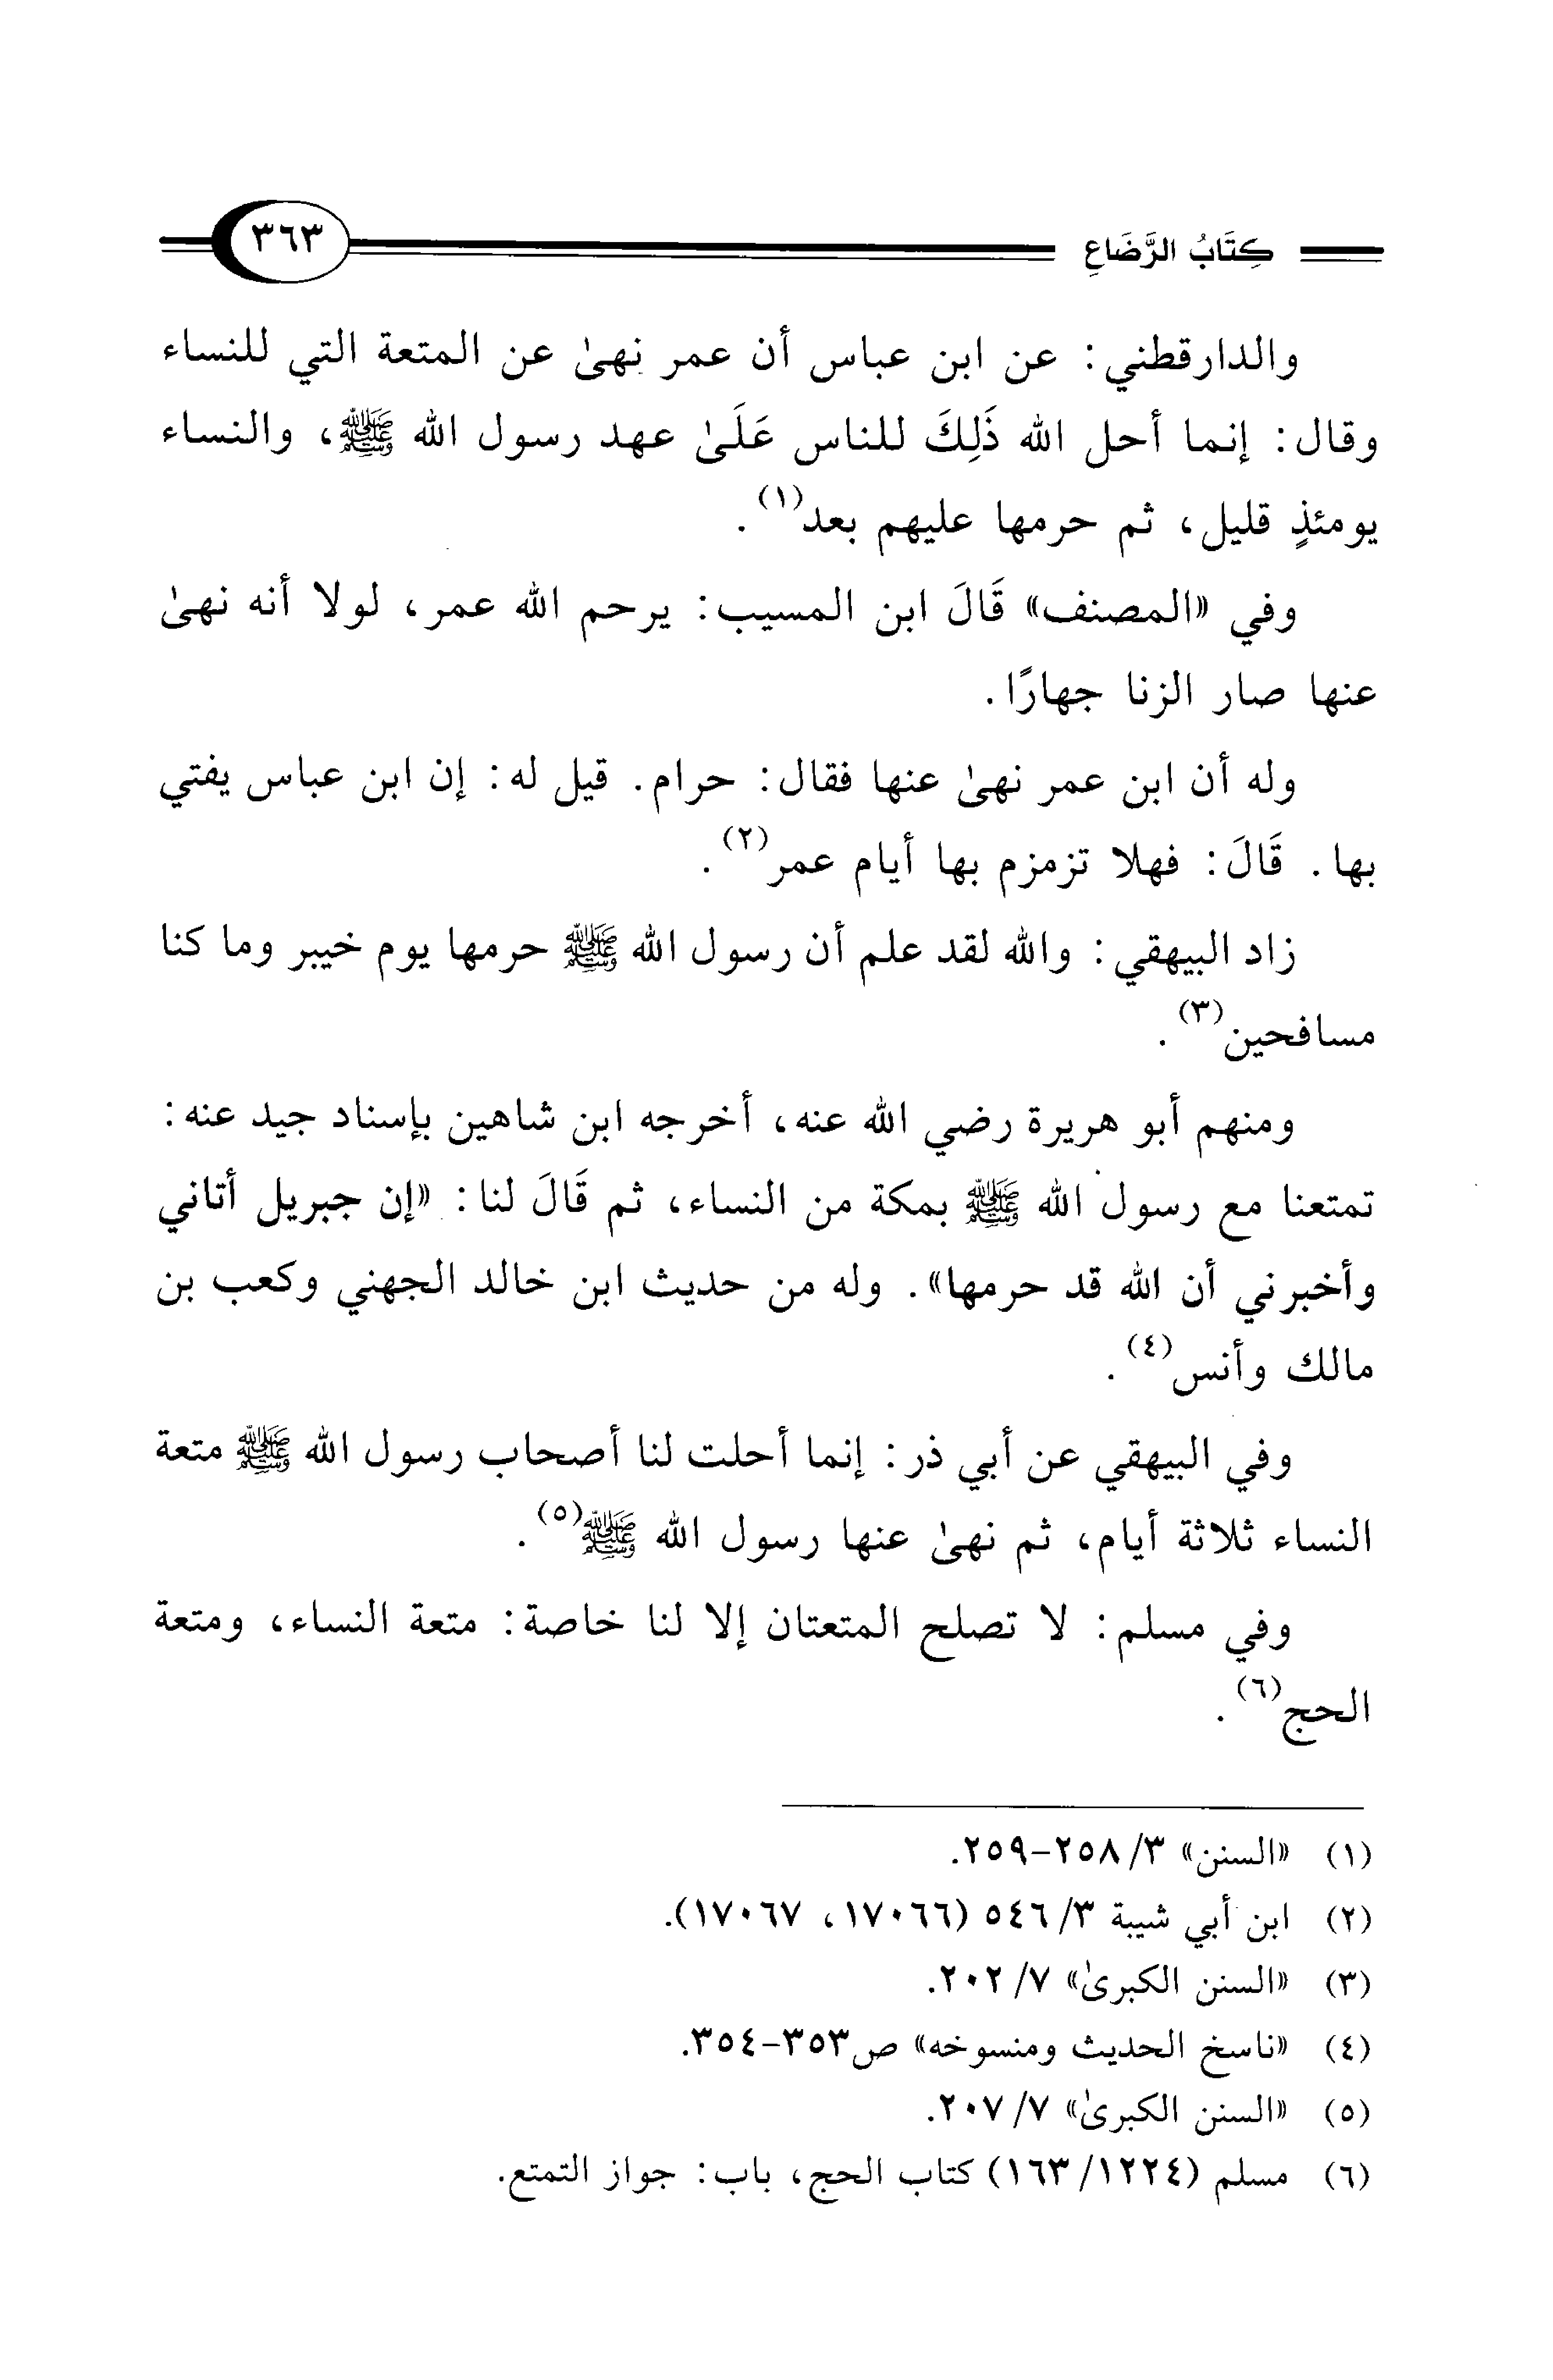 كِتَابُ الرَّضَاعِ ٣٦٣
والدارقطني: عن ابن عباس أن عمر نهىٰ عن المتعة التي للنساء
وقال: إنما أحل الله ذَلِكَ للناس عَلَىٰ عهد رسول الله ﷺ، والنساء
يومئذٍ قليل، ثم حرمها عليهم بعد(١).
وفي «المصنف» قَالَ ابن المسيب: يرحم الله عمر، لولا أنه نهىٰ
عنها صار الزنا جهارًا.
وله أن ابن عمر نهىٰ عنها فقال: حرام. قيل له: إن ابن عباس يفتي
بها. قَالَ: فهلا تزمزم بها أيام عمر(٢).
زاد البيهقي: والله لقد علم أن رسول الله ﷺ حرمها يوم خيبر وما كنا
مسافحين(٣).
ومنهم أبو هريرة رضي الله عنه، أخرجه ابن شاهين بإسناد جيد عنه:
تمتعنا مع رسول الله ﷺ بمكة من النساء، ثم قَالَ لنا: «إن جبريل أتاني
وأخبرني أن الله قد حرمها». وله من حديث ابن خالد الجهني وكعب بن
مالك وأنس(٤).
وفي البيهقي عن أبي ذر: إنما أحلت لنا أصحاب رسول الله ﷺ متعة
النساء ثلاثة أيام، ثم نهىٰ عنها رسول الله ﷺ(٥).
وفي مسلم: لا تصلح المتعتان إلا لنا خاصة: متعة النساء، ومتعة
الحج(٦).
(١) «السنن» ٣/ ٢٥٨-٢٥٩.
(٢) ابن أبي شيبة ٣/ ٥٤٦ (١٧٠٦٦، ١٧٠٦٧).
(٣) «السنن الكبرىٰ» ٧/ ٢٠٢.
(٤) «ناسخ الحديث ومنسوخه» ص٣٥٣-٣٥٤.
(٥) «السنن الكبرىٰ» ٧/ ٢٠٧.
(٦) مسلم (١٢٢٤/ ١٦٣) كتاب الحج، باب: جواز التمتع.